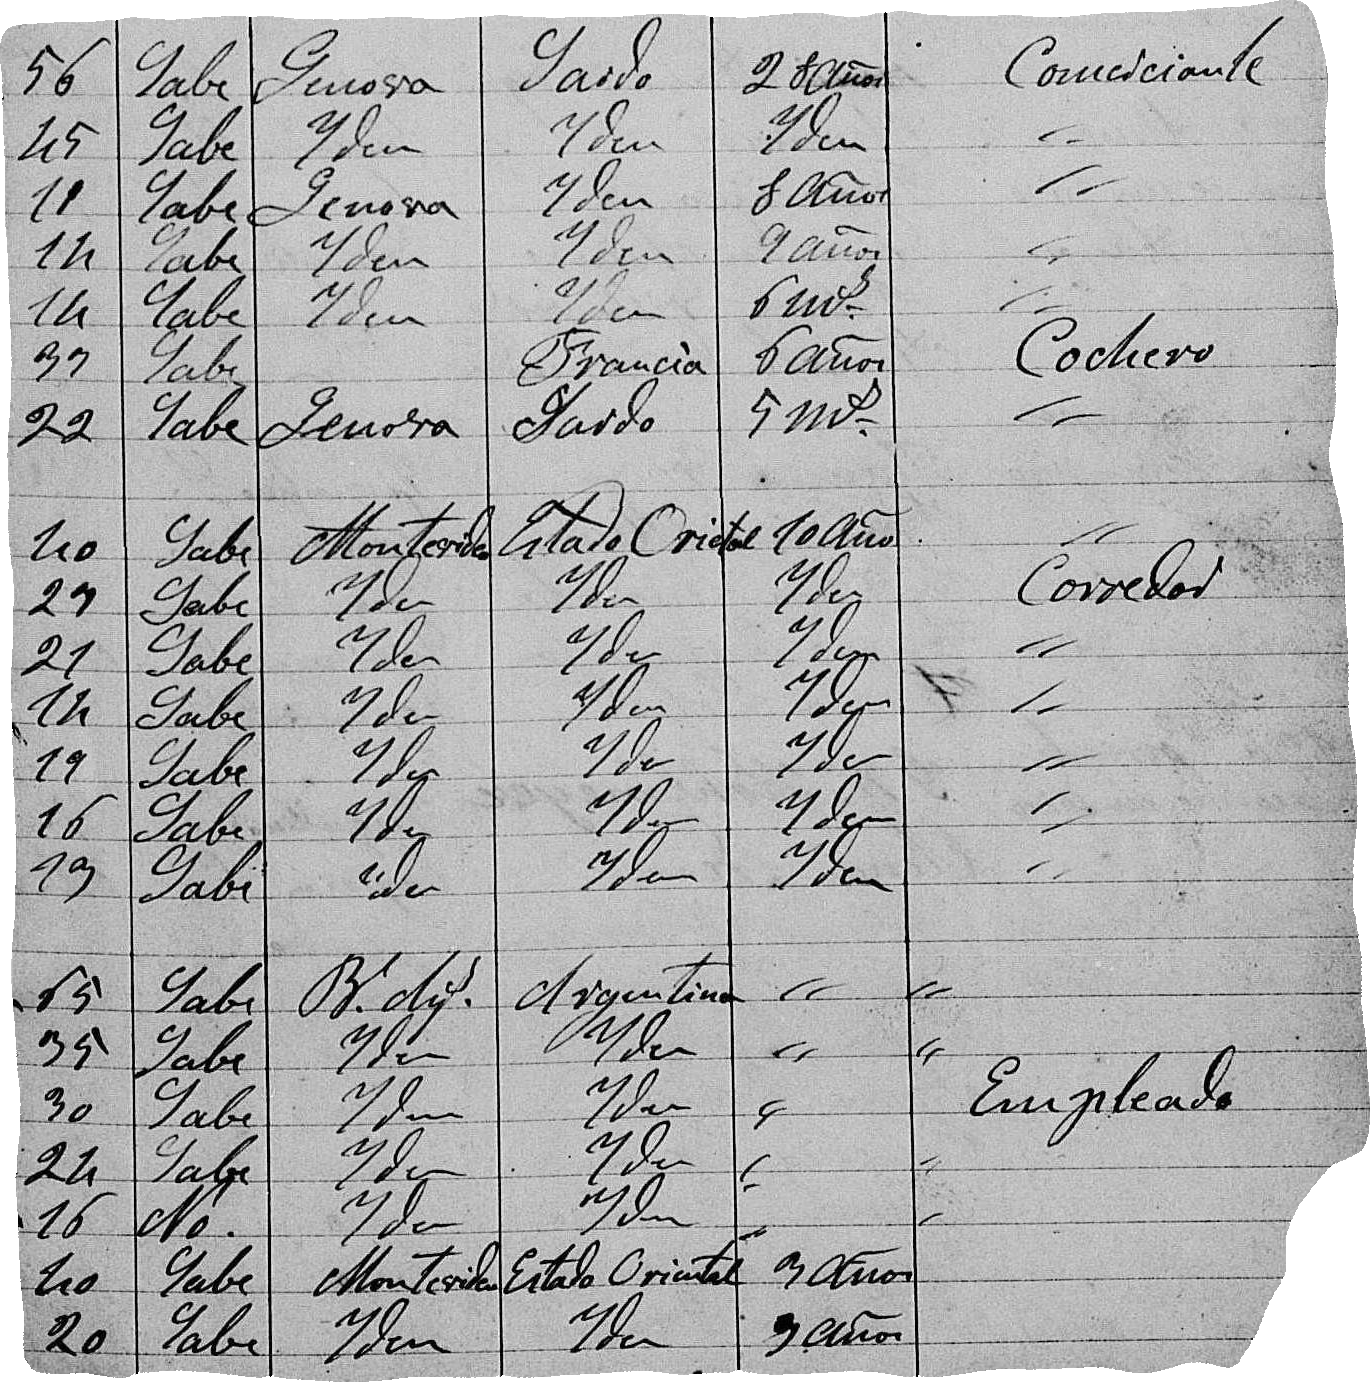 56 Sabe Genova Sardo 28 años Comerciante
45 Sabe Yden Yden Yden "
11 Sabe Genova Yden 8 años "
14 Sabe Yden Yden 9 años "
14 Sabe Yden Yden 6 ms. "
37 Sabe Francia 6 años Cochero
22 Sabe Genova Sardo 5 ms. "
40 Sabe Montevideo Estado Orietal 10 año "
27 Sabe Yden Yden Yden Corredor
21 Sabe Yden Yden Yden "
14 Sabe Yden Yden Yden "
19 Sabe Yden Yden Yden "
16 Sabe Yden Yden Yden "
13 Sabe Yden Yden Yden "
65 Sabe Bs. Ays. Argentina " "
35 Sabe Yden Yden " "
30 Sabe Yden Yden " Empleado
24 Sabe Yden Yden " "
16 No. Yden Yden " "
40 Sabe Montevideo Estado Oriental 3 años
20 Sabe Yden Yden 3 años